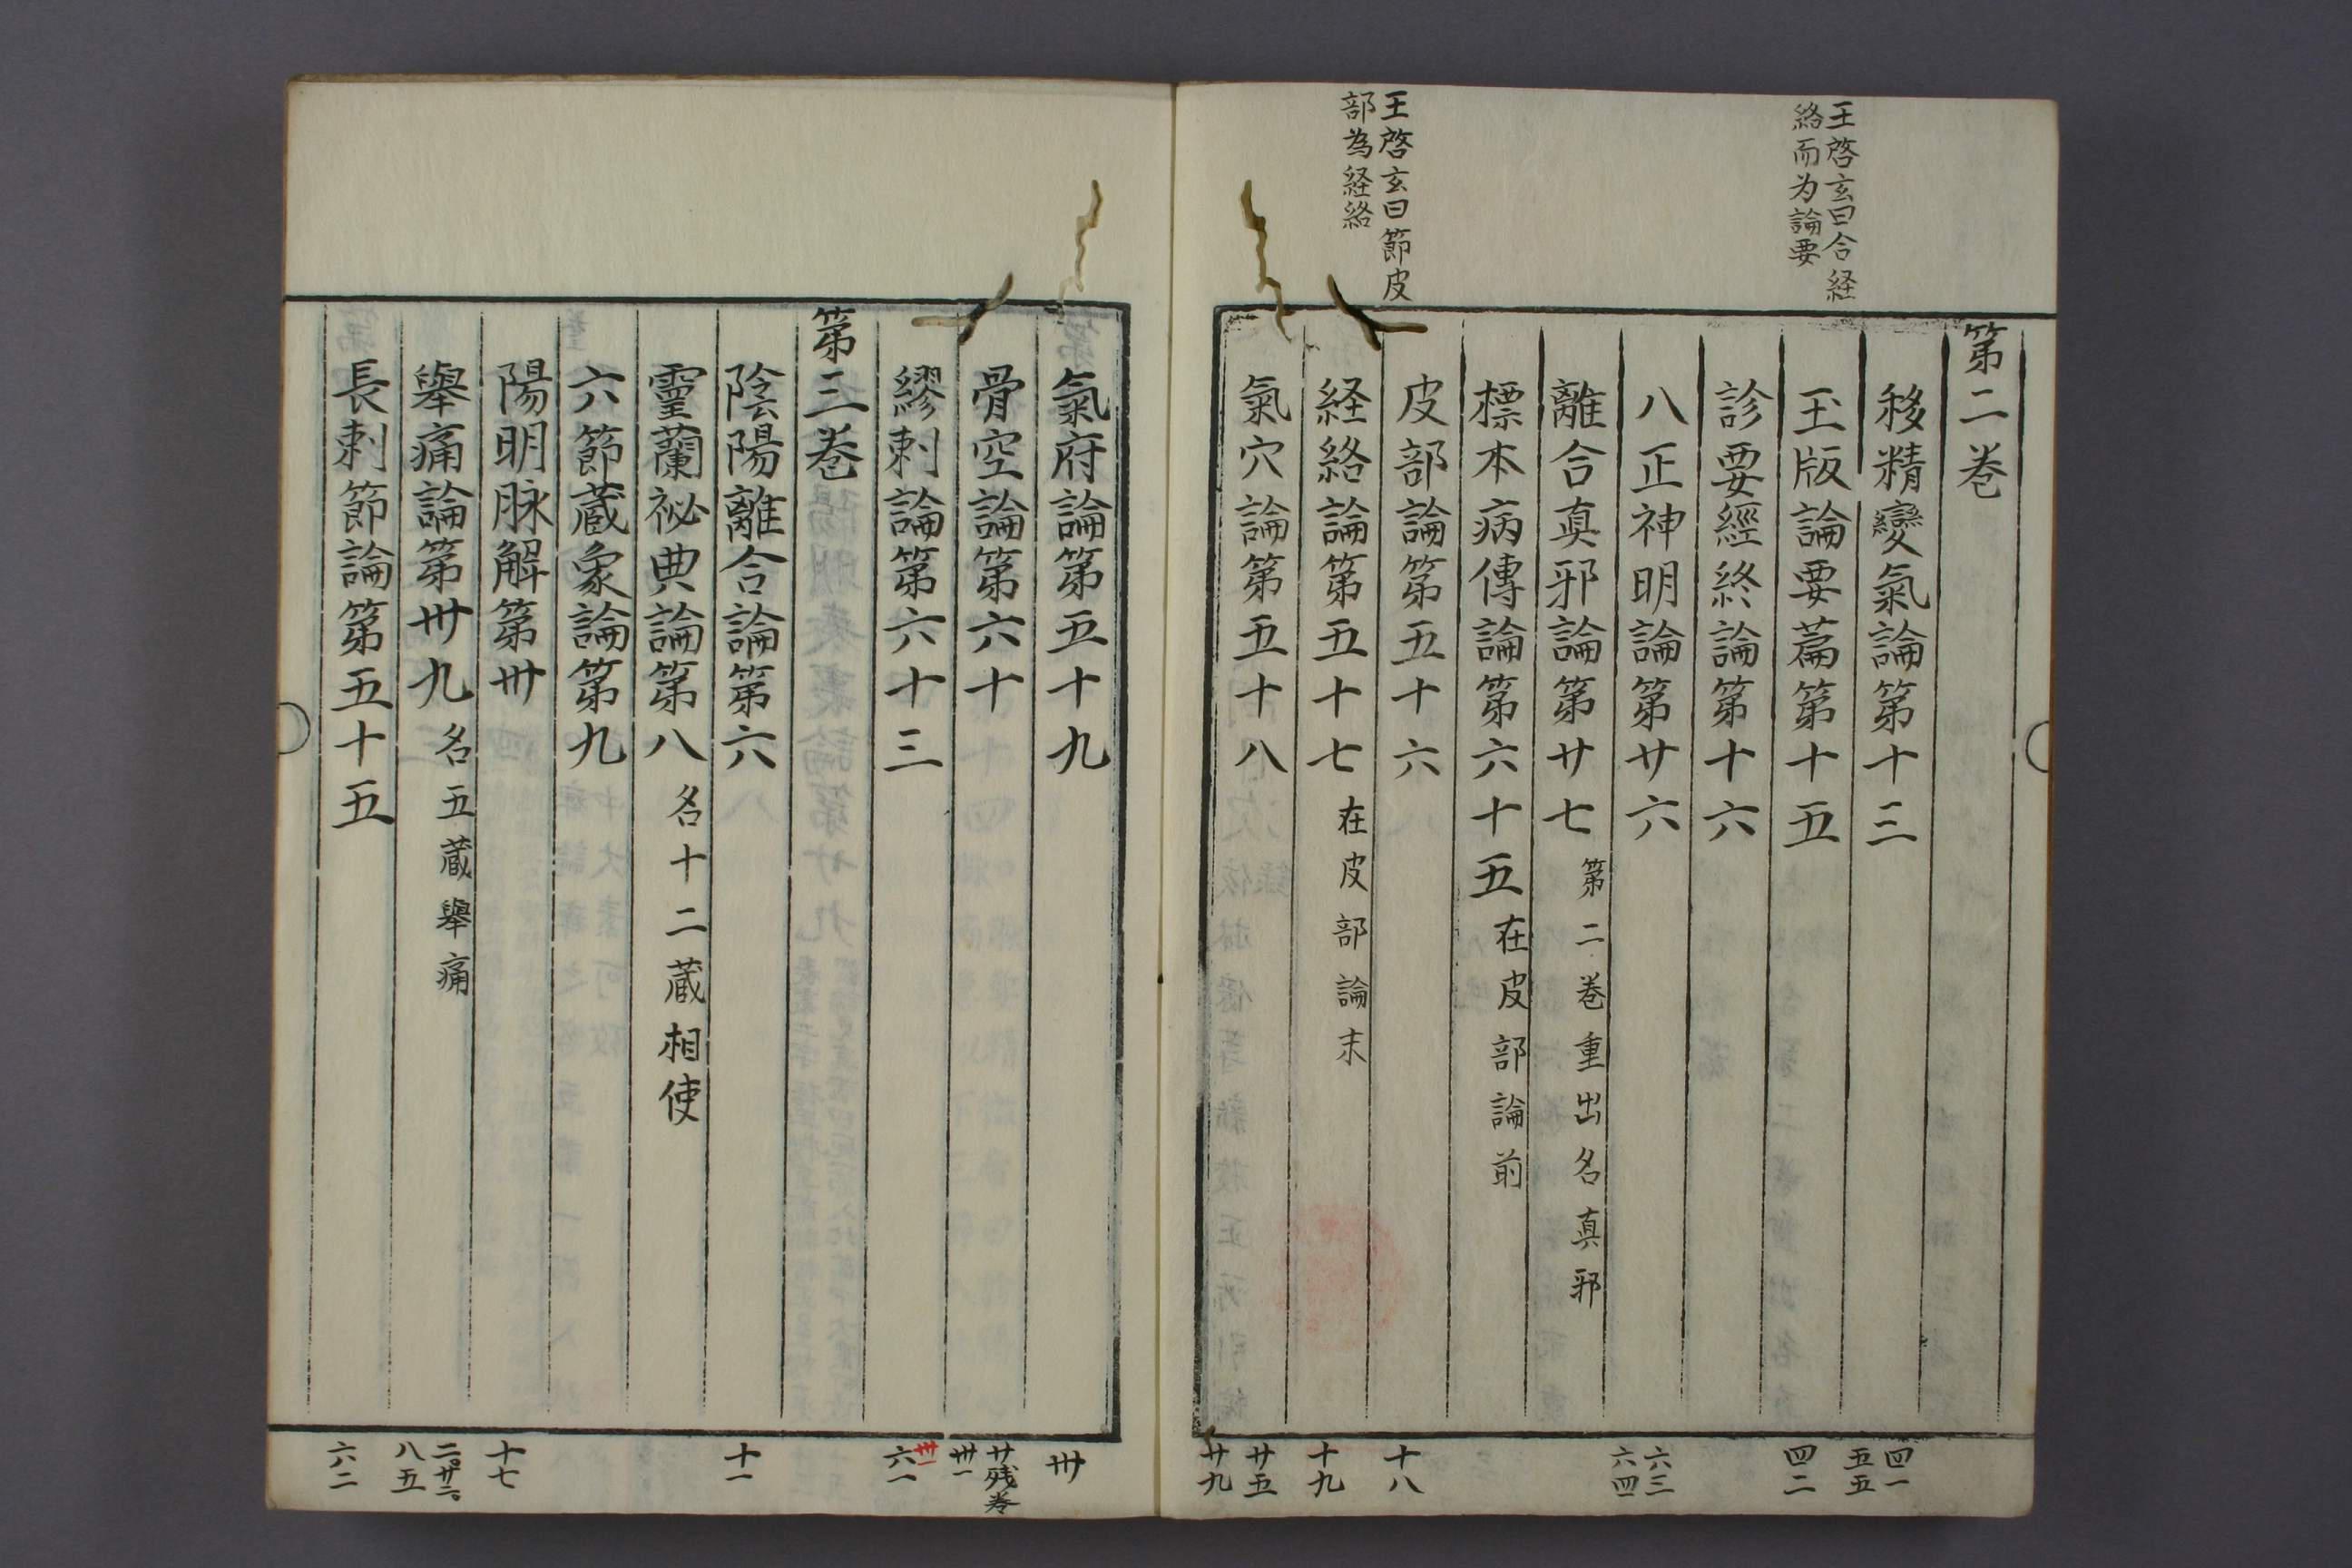 王啓玄曰合経
絡而为論要
王啓玄曰節皮
部為経絡
第二巻
移精變氣論第十三
玉版論要萹第十五
診要經終論第十六
八正神明論第廿六
離合真邪論第廿七 第二巻重出名真邪
標本病傳論第六十五 在皮部論前
皮部論第五十六
経絡論第五十七 在皮部論末
氣穴論第五十八
四一
五五
四二
六三
六四
十八
十九
廿五
廿九
氣府論第五十九
骨空論第六十
繆刺論第六十三
第三巻
陰陽離合論第六
靈蘭祕典論第八 名十二蔵相使
六節蔵象論第九
陽明脉解第卅
舉痛論第卅九 名五蔵舉痛
長刺節論第五十五
卅
廿残巻
卅一
卅一
六一
十一
十七
二〇廿二〇
八五
六二